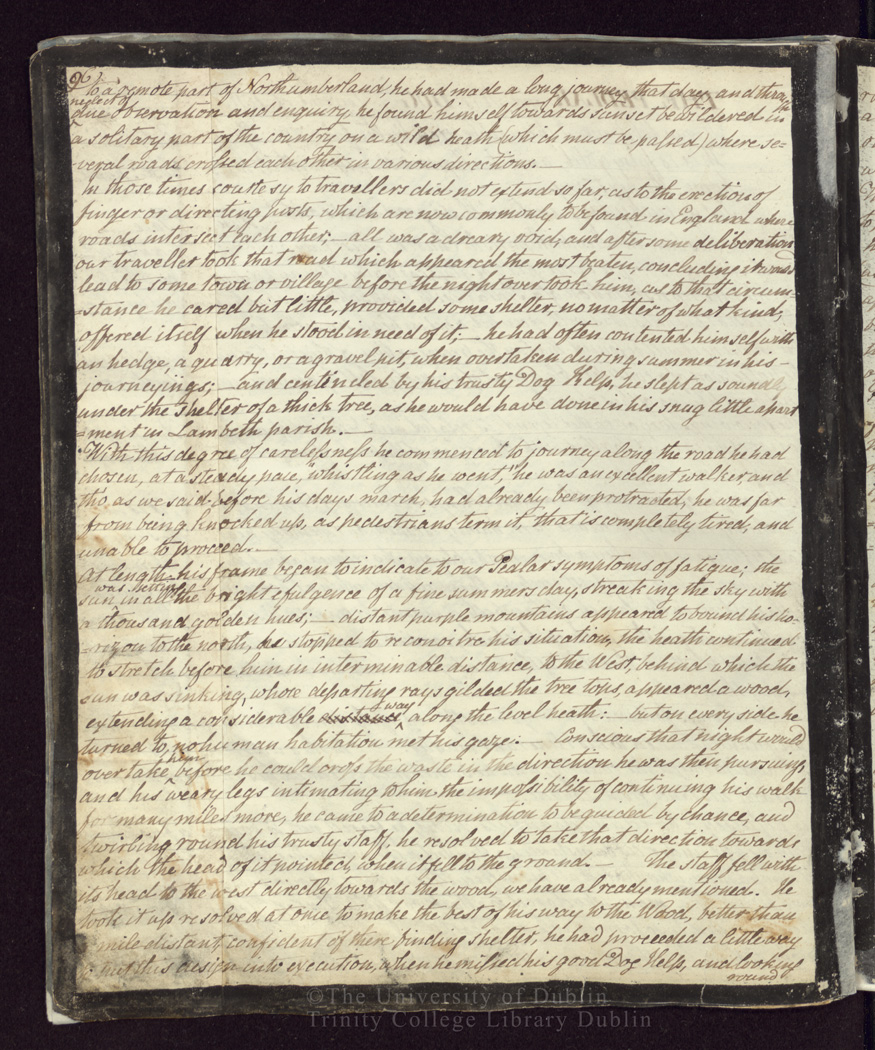 96
to a remote part of Northumberland, he had made a long journey that day, and thro'
neglect of
due observation and enquiry he found himself towards sunset bewildered in
a solitary part of the country on a wild heath (which must be passed) where se=
=veral roads crossed each other in various directions.—
In those times courtesy to travellers did not extend so far, as to the erection of
finger or directing posts, which are now commonly to be found in England where
roads intersect each other;— all was a dreary void, and after some deliberation
our traveller took that road which appeared the most beaten, concluding it would
lead to some town or village before the night overtook him, as to that circum=
=stance he cared but little, provided some shelter, no matter of what kind,
offered itself when he stood in need of it;— he had often contented himself with
an hedge, a quarry, or a gravel pit, when overtaken during summer in his—
journeyings;— and centineled by his trusty Dog Help, he slept as soundly
under the shelter of a thick tree, as he would have done in his snug little apart
=ment in Lambeth parish.—
With this degree of carelessness he commenced to journey along the road he had
chosen, at a steady pace, "whistling as he went," he was an excellent walker, and
tho' as we said before his days march, had already been protracted, he was far
from being knocked up, as pedestrians term it, that is completely tired, and
unable to proceed.—
At length his frame began to indicate to our Pedlar symptoms of fatigue; the
was setting
sun in all the bright efulgence of a fine summers day, streaking the sky with
a thousand golden hues;— distant purple mountains appeared to bound his ho=
=rizon to the north, he stopped to reconoitre his situation, the heath continued
to stretch before him in interminable distance, to the West, behind which the
sun was sinking, whose departing rays gilded the tree tops, appeared a wood,
way
extending a considerable distance along the level heath:— but on every side he
turned to, no human habitation met his gaze:— Conscious that night would
him
overtake before he could cross the waste in the direction he was then pursuing,
and his weary legs intimating to him the impossibility of continuing his walk
for many miles more, he came to a determination to be guided by chance, and
twirling round his trusty staff, he resolved to take that direction towards
which the head of it pointed, when it fell to the ground.— The staff fell with
its head to the west directly towards the wood, we have already mentioned. He
took it up resolved at once to make the best of his way to the Wood, better than
a mile distant, confident of there finding shelter, he had proceeded a little way
to put this design into execution, when he missed his good Dog Help, and looking
round
©The University of Dublin
Trinity College Library Dublin